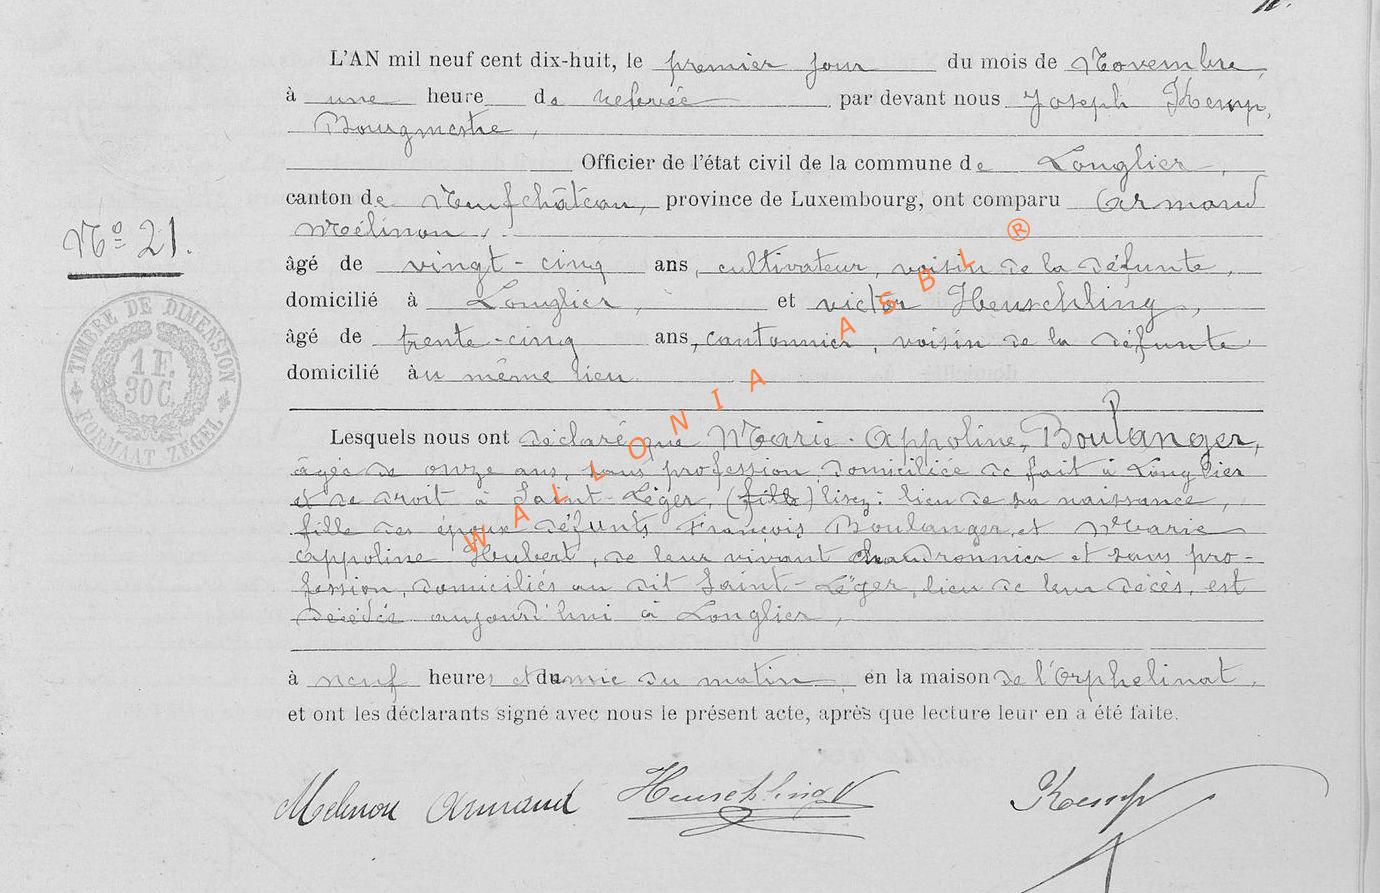 L'AN mil neuf cent dix-huit, le premier jour du mois de Novembre,
à une heure de relevée par devant nous Joseph Kemp,
Bourgmestre,
Officier de l'état civil de la commune de Longlier,
canton de Neufchâteau, province de Luxembourg, ont comparu Armand
Mélinon,
No 21.
âgé de vingt-cinq ans, cultivateur, voisin de la défunte,
domicilié à Longlier, et victor Heuschling,
âgé de trente-cinq ans, cantonnier, voisin de la défunte
domicilié au même lieu
TIMBRE DE DIMENSION
1 F.
30 C.
FORMAAT ZEGEL
Lesquels nous ont déclaré que Marie-Appoline, Boulanger,
âgée de onze ans, sans profession, domiciliée de fait à Longlier
et de droit à Saint-Léger, (fille) lisez: lieu de sa naissance,
fille des époux défunts François Boulanger, et Marie
Appoline Hubert, de leur vivant chaudronnier et sans pro-
fession, domiciliés au dit Saint-Léger, lieu de leur décès, est
décédée aujourd'hui à Longlier,
à neuf heures et demie du matin en la maison de l'Orphelinat,
et ont les déclarants signé avec nous le présent acte, après que lecture leur en a été faite.
Melinon Armand Heuschling V Kemp
WALLONIA ASBL ®